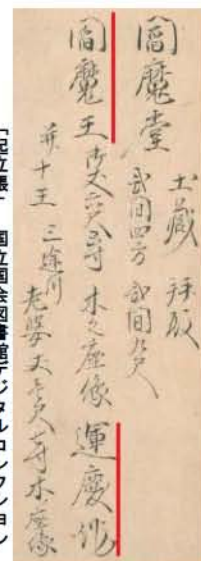 閻魔堂 土蔵 拝殿
弐間四方 弐間九尺
閻魔王 木之座像 運慶作
并十王 三途川
老婆 木座像
「起立帳」 国立国会図書館デジタルコレクション